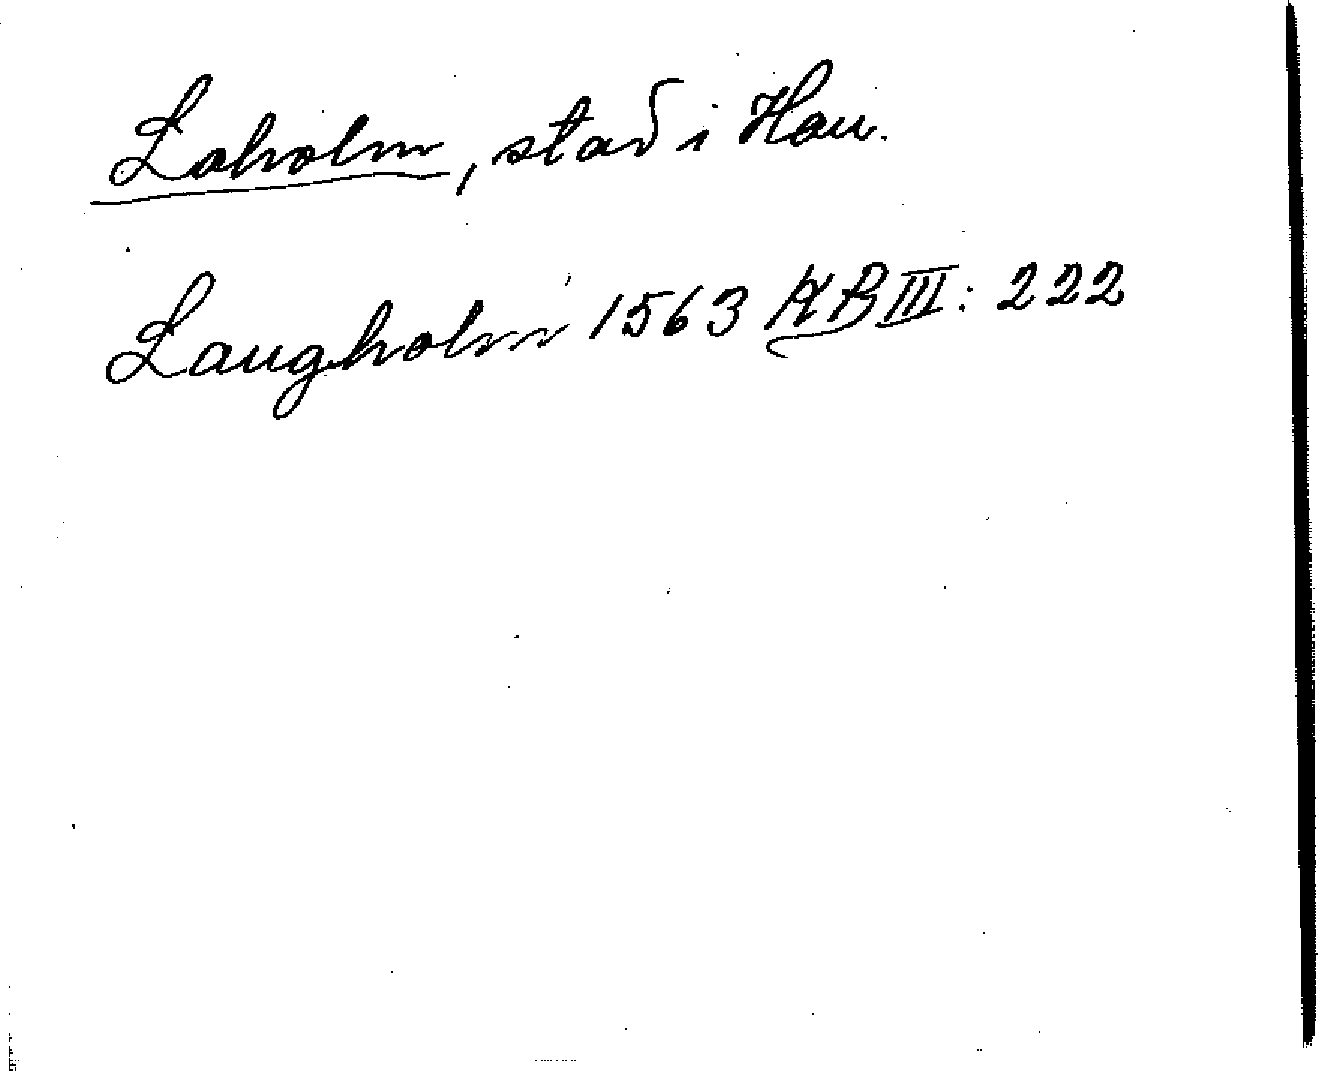 Laholm, stad i Hall.
Laugholm 1563 KB III: 222